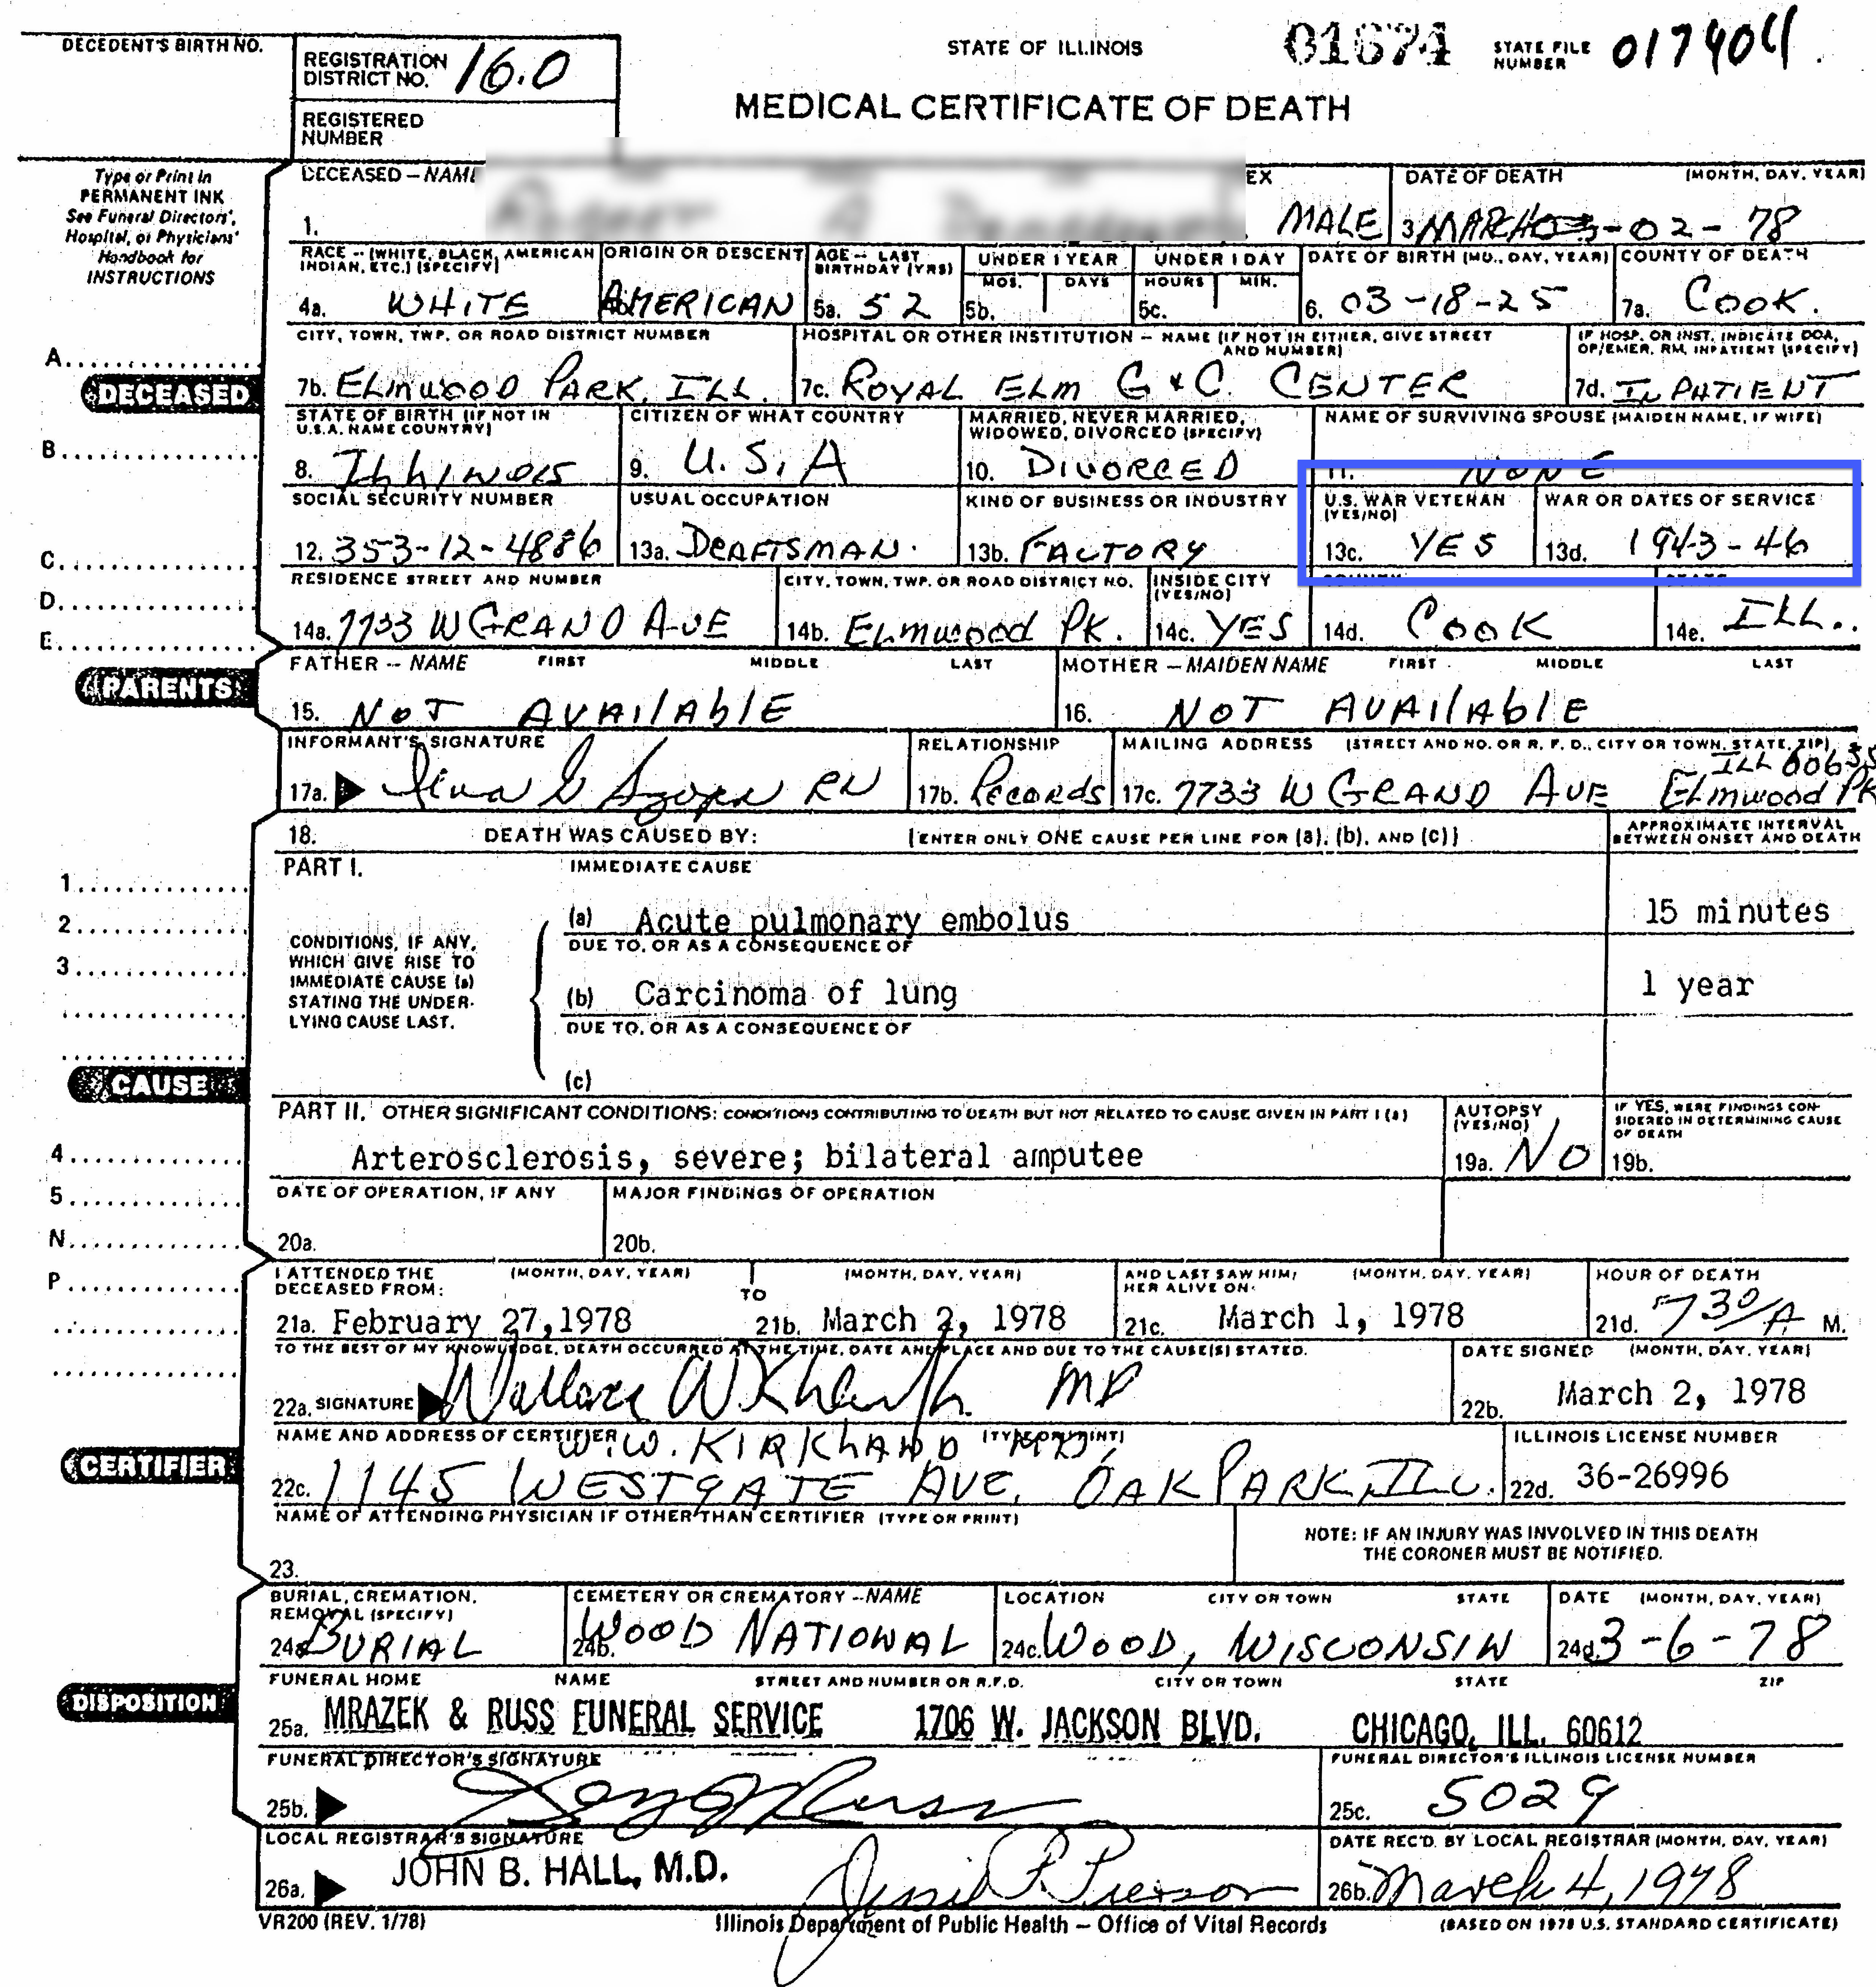 STATE OF ILLINOIS
01674
STATE FILE NUMBER 017404
DECEDENT'S BIRTH NO.
REGISTRATION DISTRICT NO. 16.0
REGISTERED NUMBER
MEDICAL CERTIFICATE OF DEATH
Type or Print in
PERMANENT INK
See Funeral Directors',
Hospital, or Physicians'
Handbook for
INSTRUCTIONS
DECEASED – NAME
1.
EX
MALE
DATE OF DEATH (MONTH, DAY, YEAR)
3 MARCH -02-78
RACE – (WHITE, BLACK, AMERICAN INDIAN, ETC.) (SPECIFY)
4a. WHITE
ORIGIN OR DESCENT
AMERICAN
AGE – LAST BIRTHDAY (YRS)
5a. 52
UNDER 1 YEAR
MOS. DAYS
5b.
UNDER 1 DAY
HOURS MIN.
5c.
DATE OF BIRTH (MO., DAY, YEAR)
6. 03-18-25
COUNTY OF DEATH
7a. COOK.
A
DECEASED
CITY, TOWN, TWP. OR ROAD DISTRICT NUMBER
7b. ELMWOOD PARK, ILL.
HOSPITAL OR OTHER INSTITUTION – NAME (IF NOT IN EITHER, GIVE STREET AND NUMBER)
7c. ROYAL ELM G & C. CENTER
IF HOSP. OR INST. INDICATE DOA, OP/EMER. RM, INPATIENT (SPECIFY)
7d. INPATIENT
B
STATE OF BIRTH (IF NOT IN U.S.A. NAME COUNTRY)
8. ILLINOIS
CITIZEN OF WHAT COUNTRY
9. U.S.A
MARRIED, NEVER MARRIED, WIDOWED, DIVORCED (SPECIFY)
10. DIVORCED
NAME OF SURVIVING SPOUSE (MAIDEN NAME, IF WIFE)
11. NONE
SOCIAL SECURITY NUMBER
12. 353-12-4886
USUAL OCCUPATION
13a. DRAFTSMAN.
KIND OF BUSINESS OR INDUSTRY
13b. FACTORY
U.S. WAR VETERAN (YES/NO)
13c. YES
WAR OR DATES OF SERVICE
13d. 1943-46
C
D
E
RESIDENCE STREET AND NUMBER
14a. 7733 W GRAND AVE
CITY, TOWN, TWP. OR ROAD DISTRICT NO.
14b. ELMWOOD PK.
INSIDE CITY (YES/NO)
14c. YES
COUNTY
14d. COOK
STATE
14e. ILL..
PARENTS
FATHER – NAME FIRST MIDDLE LAST
15. NOT AVAILABLE
MOTHER – MAIDEN NAME FIRST MIDDLE LAST
16. NOT AVAILABLE
INFORMANT'S SIGNATURE
17a. RN
RELATIONSHIP
17b. Records
MAILING ADDRESS (STREET AND NO. OR R. F. D., CITY OR TOWN, STATE, ZIP)
17c. 7733 W GRAND AVE ELMWOOD PK ILL 60635
18. DEATH WAS CAUSED BY: (ENTER ONLY ONE CAUSE PER LINE FOR (a), (b), AND (c))
APPROXIMATE INTERVAL BETWEEN ONSET AND DEATH
PART I. IMMEDIATE CAUSE
1
2
3
(a) Acute pulmonary embolus 15 minutes
DUE TO, OR AS A CONSEQUENCE OF
CONDITIONS, IF ANY,
WHICH GIVE RISE TO
IMMEDIATE CAUSE (a)
STATING THE UNDER-
LYING CAUSE LAST.
(b) Carcinoma of lung 1 year
DUE TO, OR AS A CONSEQUENCE OF
(c)
CAUSE
PART II. OTHER SIGNIFICANT CONDITIONS: CONDITIONS CONTRIBUTING TO DEATH BUT NOT RELATED TO CAUSE GIVEN IN PART I (a)
Arterosclerosis, severe; bilateral amputee
AUTOPSY (YES/NO)
19a. NO
IF YES, WERE FINDINGS CONSIDERED IN DETERMINING CAUSE OF DEATH
19b.
4
5
N
P
DATE OF OPERATION, IF ANY
20a.
MAJOR FINDINGS OF OPERATION
20b.
I ATTENDED THE DECEASED FROM: (MONTH, DAY, YEAR)
21a. February 27, 1978
TO (MONTH, DAY, YEAR)
21b. March 2, 1978
AND LAST SAW HIM/HER ALIVE ON: (MONTH, DAY, YEAR)
21c. March 1, 1978
HOUR OF DEATH
21d. 7 30/A M.
TO THE BEST OF MY KNOWLEDGE, DEATH OCCURRED AT THE TIME, DATE AND PLACE AND DUE TO THE CAUSE(S) STATED.
22a. SIGNATURE Wallace W Kirkland MD
DATE SIGNED (MONTH, DAY, YEAR)
22b. March 2, 1978
CERTIFIER
NAME AND ADDRESS OF CERTIFIER (TYPE OR PRINT)
W.W. KIRKLAND MD,
22c. 1145 WESTGATE AVE, OAK PARK, ILL.
ILLINOIS LICENSE NUMBER
22d. 36-26996
NAME OF ATTENDING PHYSICIAN IF OTHER THAN CERTIFIER (TYPE OR PRINT)
23.
NOTE: IF AN INJURY WAS INVOLVED IN THIS DEATH
THE CORONER MUST BE NOTIFIED.
DISPOSITION
BURIAL, CREMATION, REMOVAL (SPECIFY)
24a. BURIAL
CEMETERY OR CREMATORY – NAME
24b. WOOD NATIONAL
LOCATION CITY OR TOWN STATE
24c. WOOD, WISCONSIN
DATE (MONTH, DAY, YEAR)
24d. 3-6-78
FUNERAL HOME NAME STREET AND NUMBER OR R.F.D. CITY OR TOWN STATE ZIP
25a. MRAZEK & RUSS FUNERAL SERVICE 1706 W. JACKSON BLVD. CHICAGO, ILL. 60612
FUNERAL DIRECTOR'S SIGNATURE
25b.
FUNERAL DIRECTOR'S ILLINOIS LICENSE NUMBER
25c. 5029
LOCAL REGISTRAR'S SIGNATURE
26a. JOHN B. HALL, M.D.
DATE REC'D. BY LOCAL REGISTRAR (MONTH, DAY, YEAR)
26b. March 4, 1978
VR200 (REV. 1/78)
Illinois Department of Public Health – Office of Vital Records
(BASED ON 1978 U.S. STANDARD CERTIFICATE)